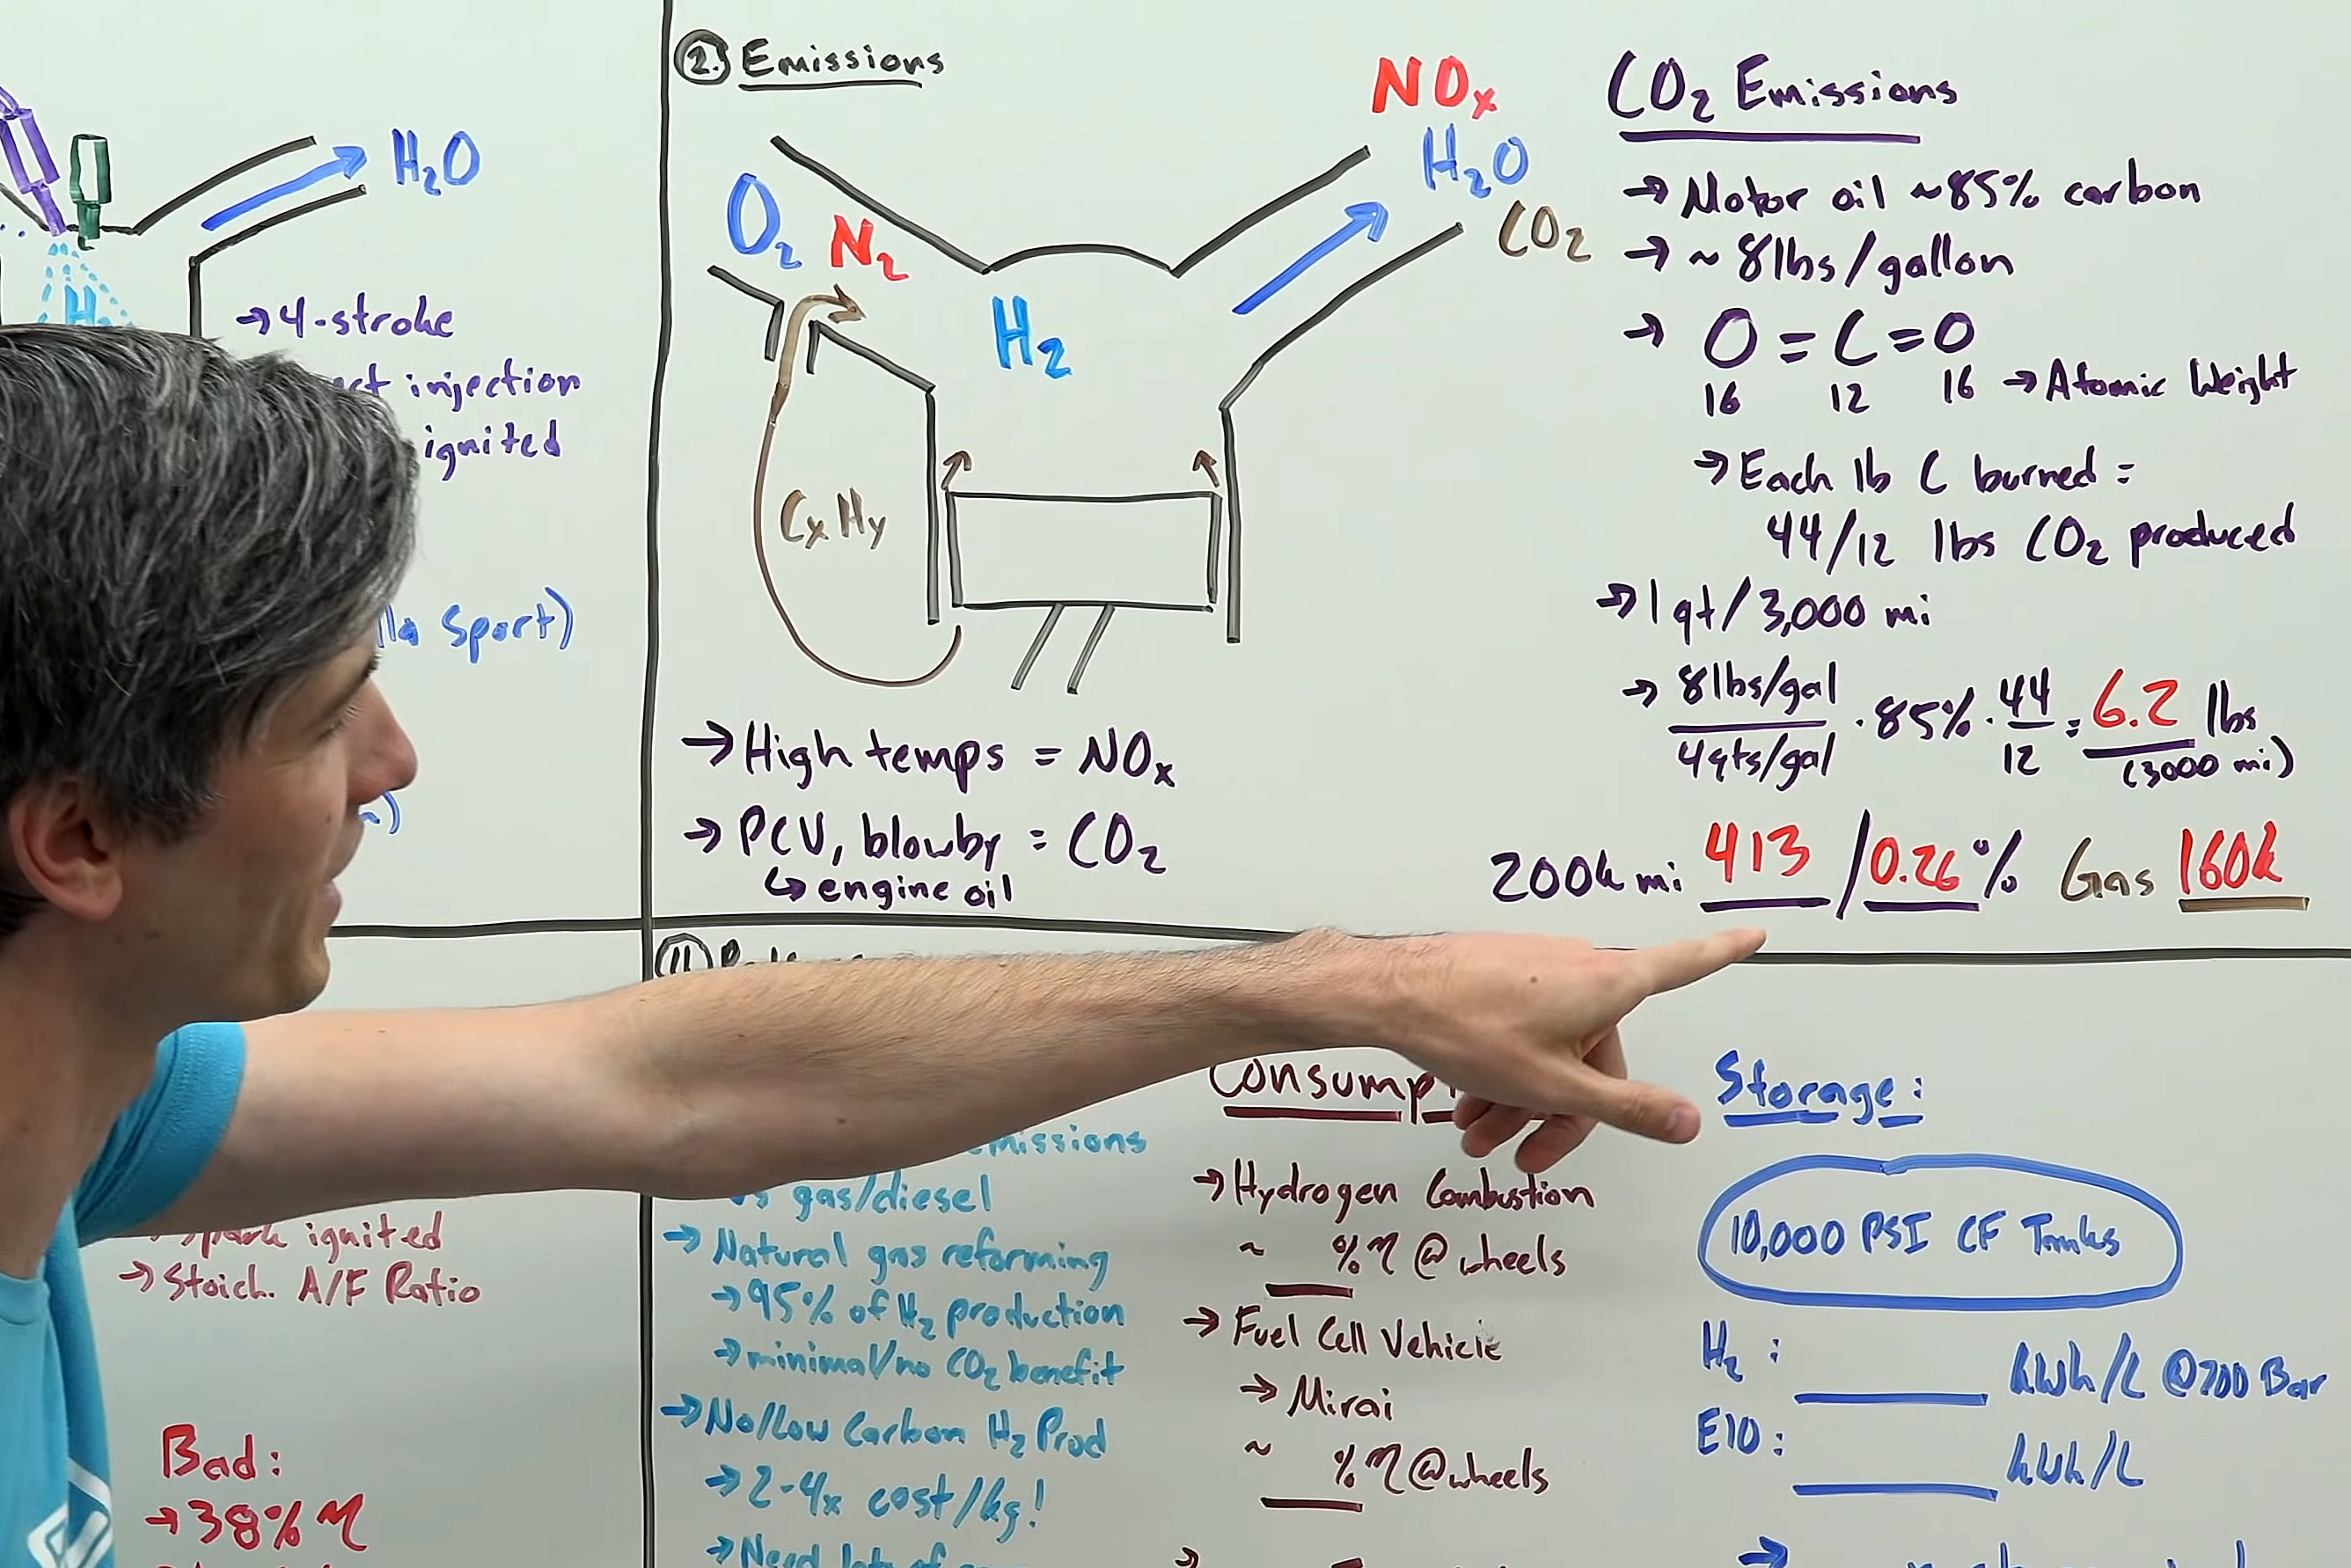 H₂O
H₂
→ 4-stroke
injection
ignited
Sport)
② Emissions
O₂
N₂
H₂
NOₓ
H₂O
CO₂
CₓHᵧ
→ High temps = NOₓ
→ PCV, blowby = CO₂
↳ engine oil
CO₂ Emissions
→ Motor oil ~85% carbon
→ ~ 8lbs/gallon
→ O = C = O
16 12 16 → Atomic Weight
→ Each lb C burned =
44/12 lbs CO₂ produced
→ 1 qt/3,000 mi
→ 8lbs/gal / 4qts/gal · 85% · 44/12 = 6.2 lbs (3000 mi)
200k mi 413 / 0.26% Gas 160k
→ Spark ignited
→ Stoich. A/F Ratio
Bad:
→ 38% η
emissions
vs gas/diesel
→ Natural gas reforming
→ 95% of H₂ production
→ minimal/no CO₂ benefit
→ No/Low Carbon H₂ Prod
→ 2-4x cost/kg!
→ Need lots of
→ Hydrogen Combustion
~ __ % η @ wheels
→ Fuel Cell Vehicle
→ Mirai
~ __ % η @ wheels
Storage:
10,000 PSI CF Tanks
H₂: ____ kWh/L @ 700 Bar
E10: ____ kWh/L